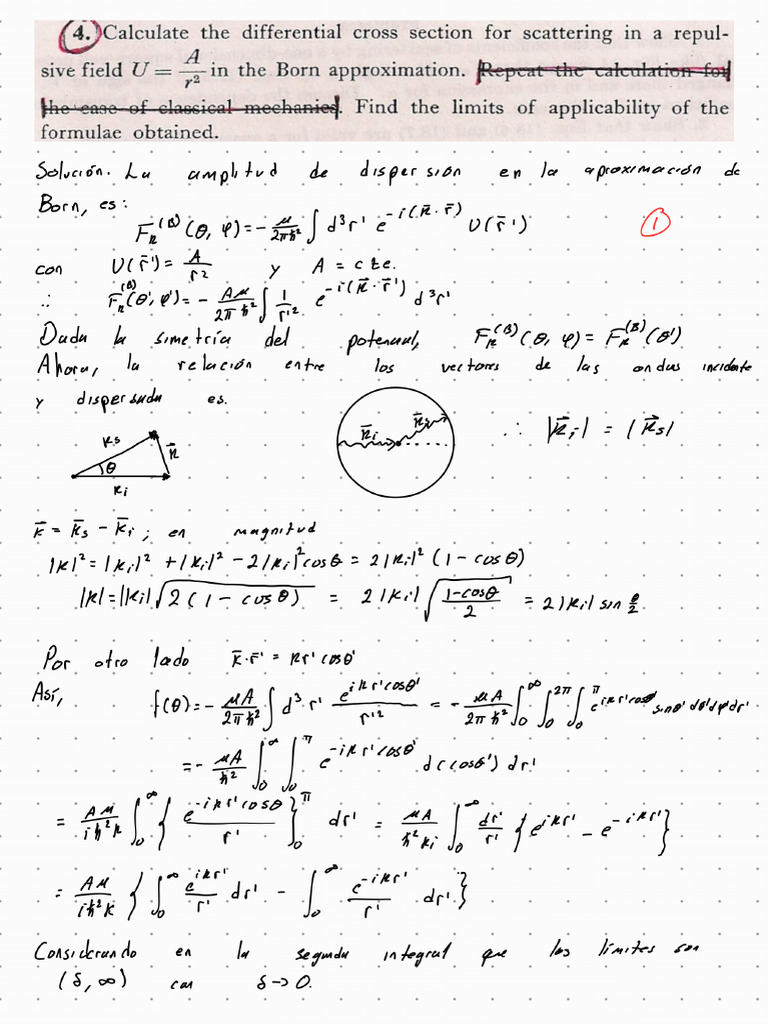 4. Calculate the differential cross section for scattering in a repul-
sive field U = A/r² in the Born approximation. Repeat the calculation for
the case of classical mechanics. Find the limits of applicability of the
formulae obtained.
Solución. La amplitud de dispersión en la aproximación de
Born, es:
F_k^(B)(θ, φ) = - μ/2πħ² ∫ d³r' e^{-i(k̄·r̄)} U(r̄') ①
con U(r̄') = A/r² y A = cte.
∴ F_k^(B)(θ', φ') = - Aμ/2πħ² ∫ 1/r'² e^{-i(k̄·r̄')} d³r'
Dada la simetría del potencial, F_k^(B)(θ, φ) = F_k^(B)(θ')
Ahora, la relación entre los vectores de las ondas incidente
y dispersada es.
ks k̄ θ ki
k̄i k̄s ∴ |k⃗i| = |k⃗s|
k̄ = k̄s - k̄i; en magnitud
|k|² = |ki|² + |ki|² - 2|ki|² cosθ = 2|ki|² (1 - cosθ)
|k| = |ki| √(2(1 - cosθ)) = 2|ki| √((1-cosθ)/2) = 2|ki| sin θ/2
Por otro lado k̄·r̄' = kr' cosθ'
Así, f(θ) = - μA/2πħ² ∫ d³r' e^{ikr'cosθ'}/r'² = - μA/2πħ² ∫₀^∞ ∫₀^2π ∫₀^π e^{ikr'cosθ'} sinθ' dθ' dφ' dr'
= - μA/ħ² ∫₀^∞ ∫₀^π e^{-ikr'cosθ'} d(cosθ') dr'
= Aμ/iħ²k ∫₀^∞ { e^{-ikr'cosθ}/r' }₀^π dr' = μA/ħ²ki ∫₀^∞ dr'/r' { e^{ikr'} - e^{-ikr'} }
= Aμ/iħ²k { ∫₀^∞ e^{ikr'}/r' dr' - ∫₀^∞ e^{-ikr'}/r' dr' }
Considerando en la segunda integral que los límites son
(δ, ∞) con δ→0.